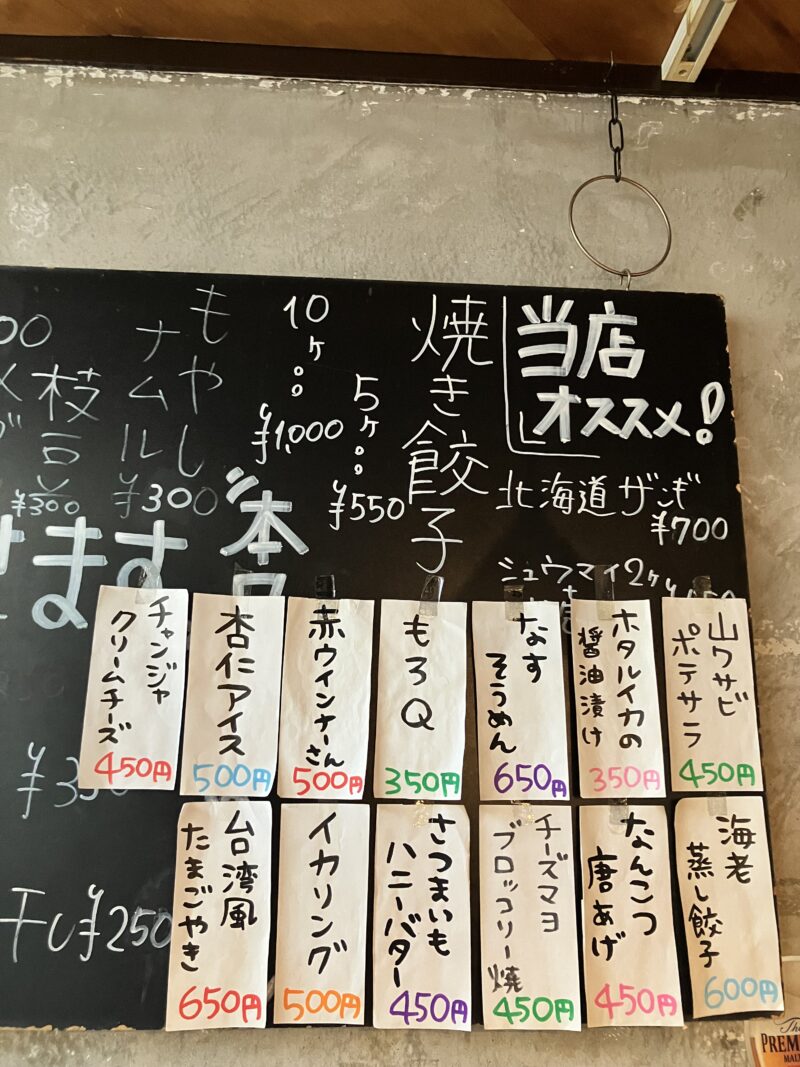 当店
オススメ!
北海道ザンギ
¥700
シュウマイ2ケ
焼き餃子
5ケ。。
¥550
10ケ。。
¥1,000
もやし
ナムル
¥300
枝豆
¥300
00
本日
ます
山ワサビ
ポテサラ
450円
ホタルイカの
醤油漬け
350円
なす
そうめん
650円
もろQ
350円
赤ウインナーさん
500円
杏仁アイス
500円
チャンジャ
クリームチーズ
450円
海老
蒸し餃子
600円
なんこつ
唐あげ
450円
チーズマヨ
ブロッコリー焼
450円
さつまいも
ハニーバター
450円
イカリング
500円
台湾風
たまごやき
650円
干し¥250
The
PREM
MAL